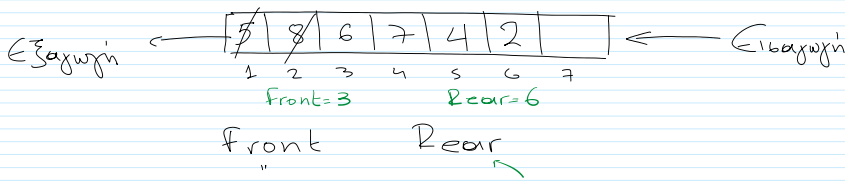 Εξαγωγή 5 8 6 7 4 2 Εισαγωγή
1 2 3 4 5 6 7
Front=3 Rear=6
Front Rear
"